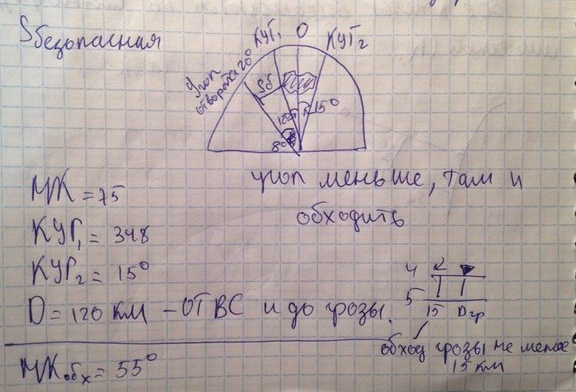 Sбезопасная
КУГ₁ О КУГ₂
Угол отворота 20°
Sб
12° 15°
8°
угол меньше, там и
обходить
МК = 75
КУГ₁ = 348
КУГ₂ = 15°
D = 120 км – от ВС и до грозы.
4
5 15 Dгр
обход грозы не менее
15 км
МКобх = 55°